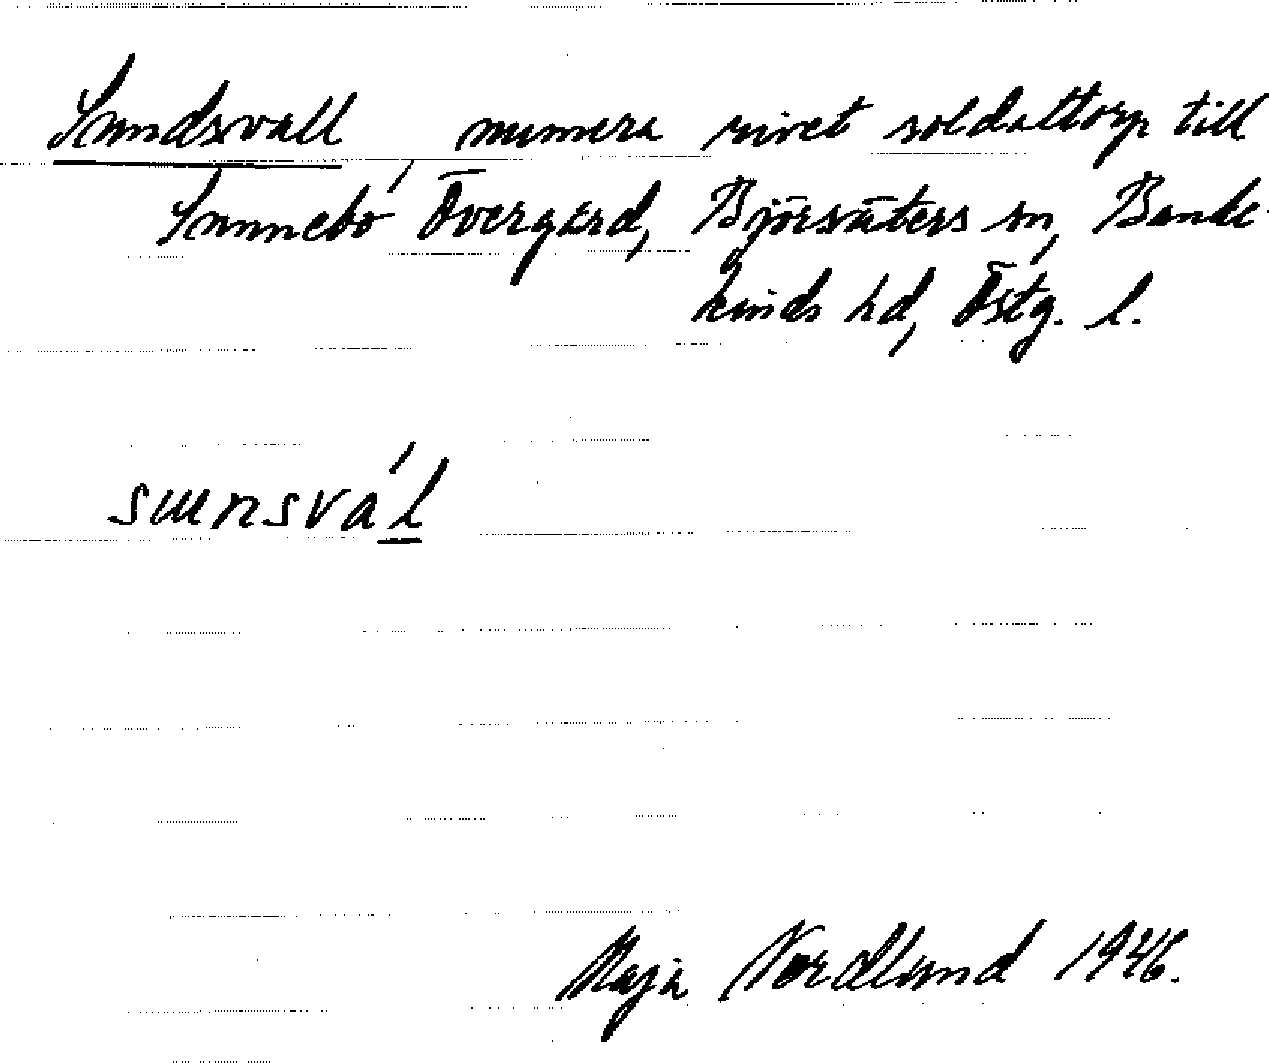 Sundsvall, numera rivet soldattorp till
Sunnebo Övergård, Björsäters sn, Bande-
kinds hd, Östg. l.
sunsvá́l
Maja Nordlund 1946.